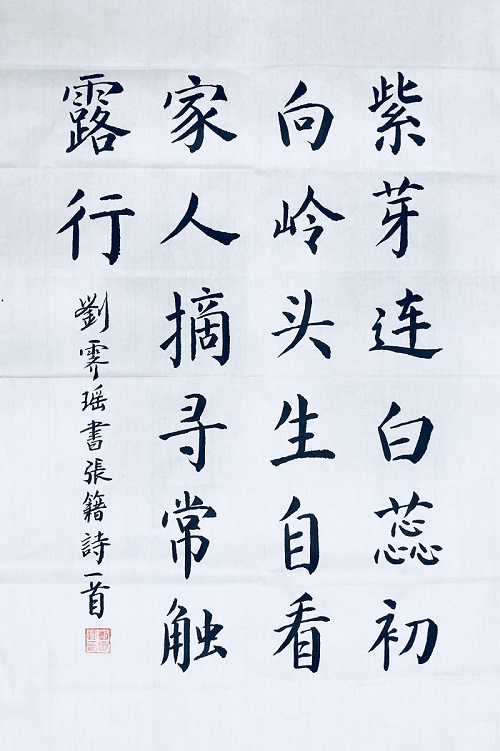 紫芽连白蕊初
向岭头生自看
家人摘寻常触
露行
劉霁瑶書張籍詩一首